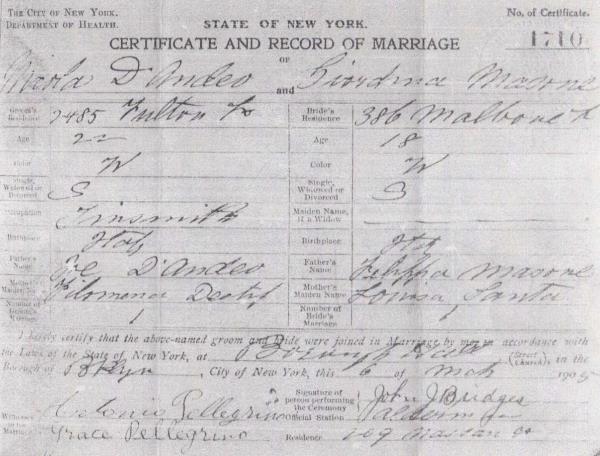 THE CITY OF NEW YORK. No. of Certificate.
DEPARTMENT OF HEALTH. STATE OF NEW YORK. 1710
CERTIFICATE AND RECORD OF MARRIAGE
OF
Nicola D'Andeo and Giordina Masone
Groom's Residence 2485 Fulton Bride's Residence 386 Malbone
Age 22 Age 18
Color W Color W
Single, Widowed or Divorced S Single, Widowed or Divorced S
Occupation Tinsmith Maiden Name, if a Widow
Birthplace Italy Birthplace Italy
Father's Name D'Andeo Father's Name Masone
Mother's Maiden Name Filomena Mother's Maiden Name Santa
Number of Groom's Marriage 1 Number of Bride's Marriage 1
I hereby certify that the above-named groom and bride were joined in Marriage by me, in accordance with
the Laws of the State of New York, at Borough Hall (Street, Church), in the
Borough of Bklyn, City of New York, this 6 of Mch 1905
Witnesses to the Marriage Antonio Pellegrino Signature of person performing the Ceremony John J Bridges
Official Station Alderman
Grace Pellegrino Residence